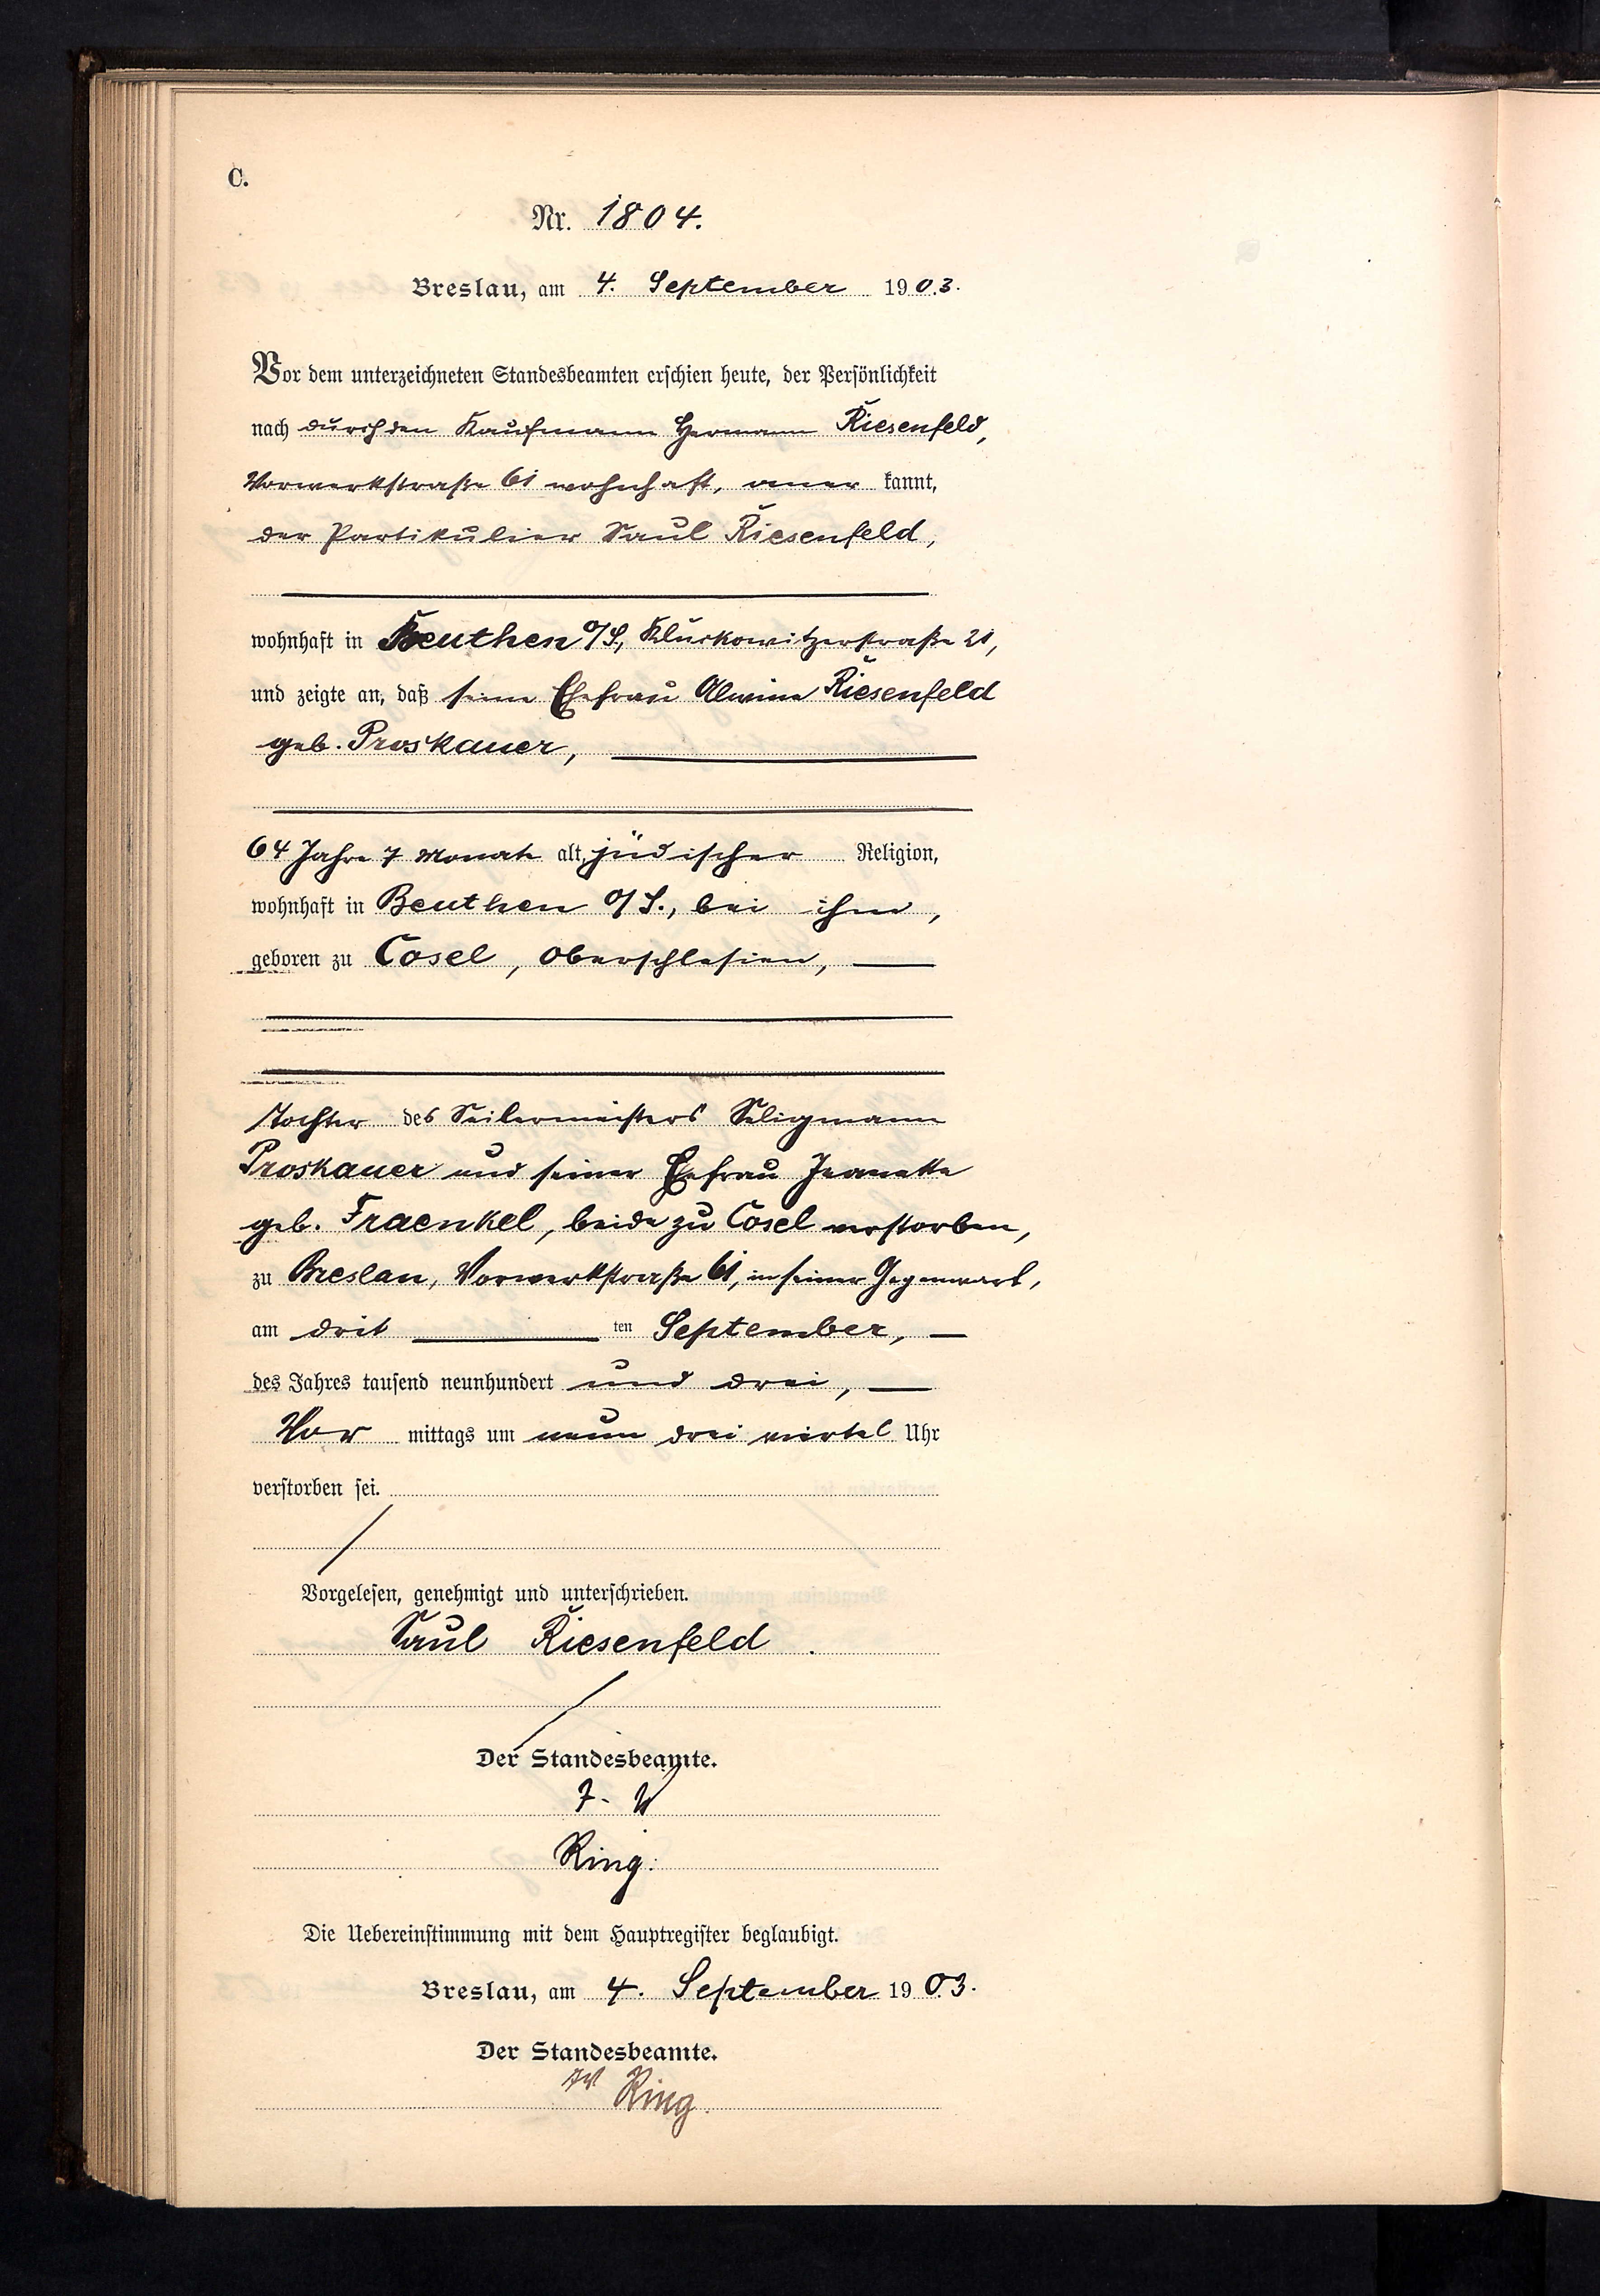 C.
Nr. 1804.
Breslau, am 4. September 1903.
Vor dem unterzeichneten Standesbeamten erschien heute, der Persönlichkeit
nach durch den Kaufmann Hermann Riesenfeld,
Vorwerkstraße 61 wohnhaft, aner kannt,
der Partikulier Saul Riesenfeld,
wohnhaft in Beuthen O/S., Kluckowitzerstraße 21,
und zeigte an, daß seine Ehefrau Alwine Riesenfeld
geb. Proskauer,
64 Jahre 7 Monate alt, jüdischer Religion,
wohnhaft in Beuthen O/S., bei ihm,
geboren zu Cosel, Oberschlesien,
Tochter des Seilermeisters Seligmann
Proskauer und seiner Ehefrau Jeanette
geb. Fraenkel, beide zu Cosel verstorben,
zu Breslau, Vorwerkstraße 61, in seiner Gegenwart,
am drit ten September,
des Jahres tausend neunhundert und drei,
Vor mittags um neun drei viertel Uhr
verstorben sei.
Vorgelesen, genehmigt und unterschrieben.
Saul Riesenfeld.
Der Standesbeamte.
J. V
Ring.
Die Uebereinstimmung mit dem Hauptregister beglaubigt.
Breslau, am 4. September 1903.
Der Standesbeamte.
JV Ring.